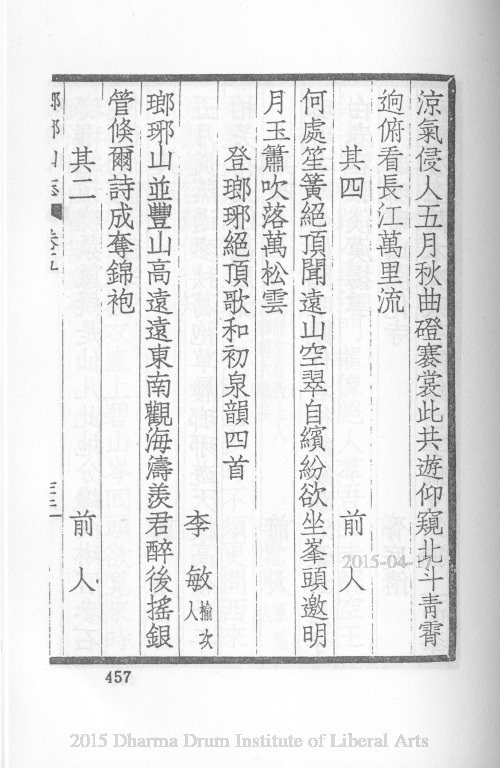 涼氣侵人五月秋曲磴褰裳此共遊仰窺北斗青霄
逈俯看長江萬里流
其四 前人
何處笙簧絕頂聞遠山空翠自繽紛欲坐峯頭邀明
月玉簫吹落萬松雲
登瑯琊絕頂歌和初泉韻四首
李敏 榆次人
瑯琊山並豐山高遠遠東南觀海濤羨君醉後搖銀
管倏爾詩成奪錦袍
其二 前人
457
2015-04-17
2015 Dharma Drum Institute of Liberal Arts